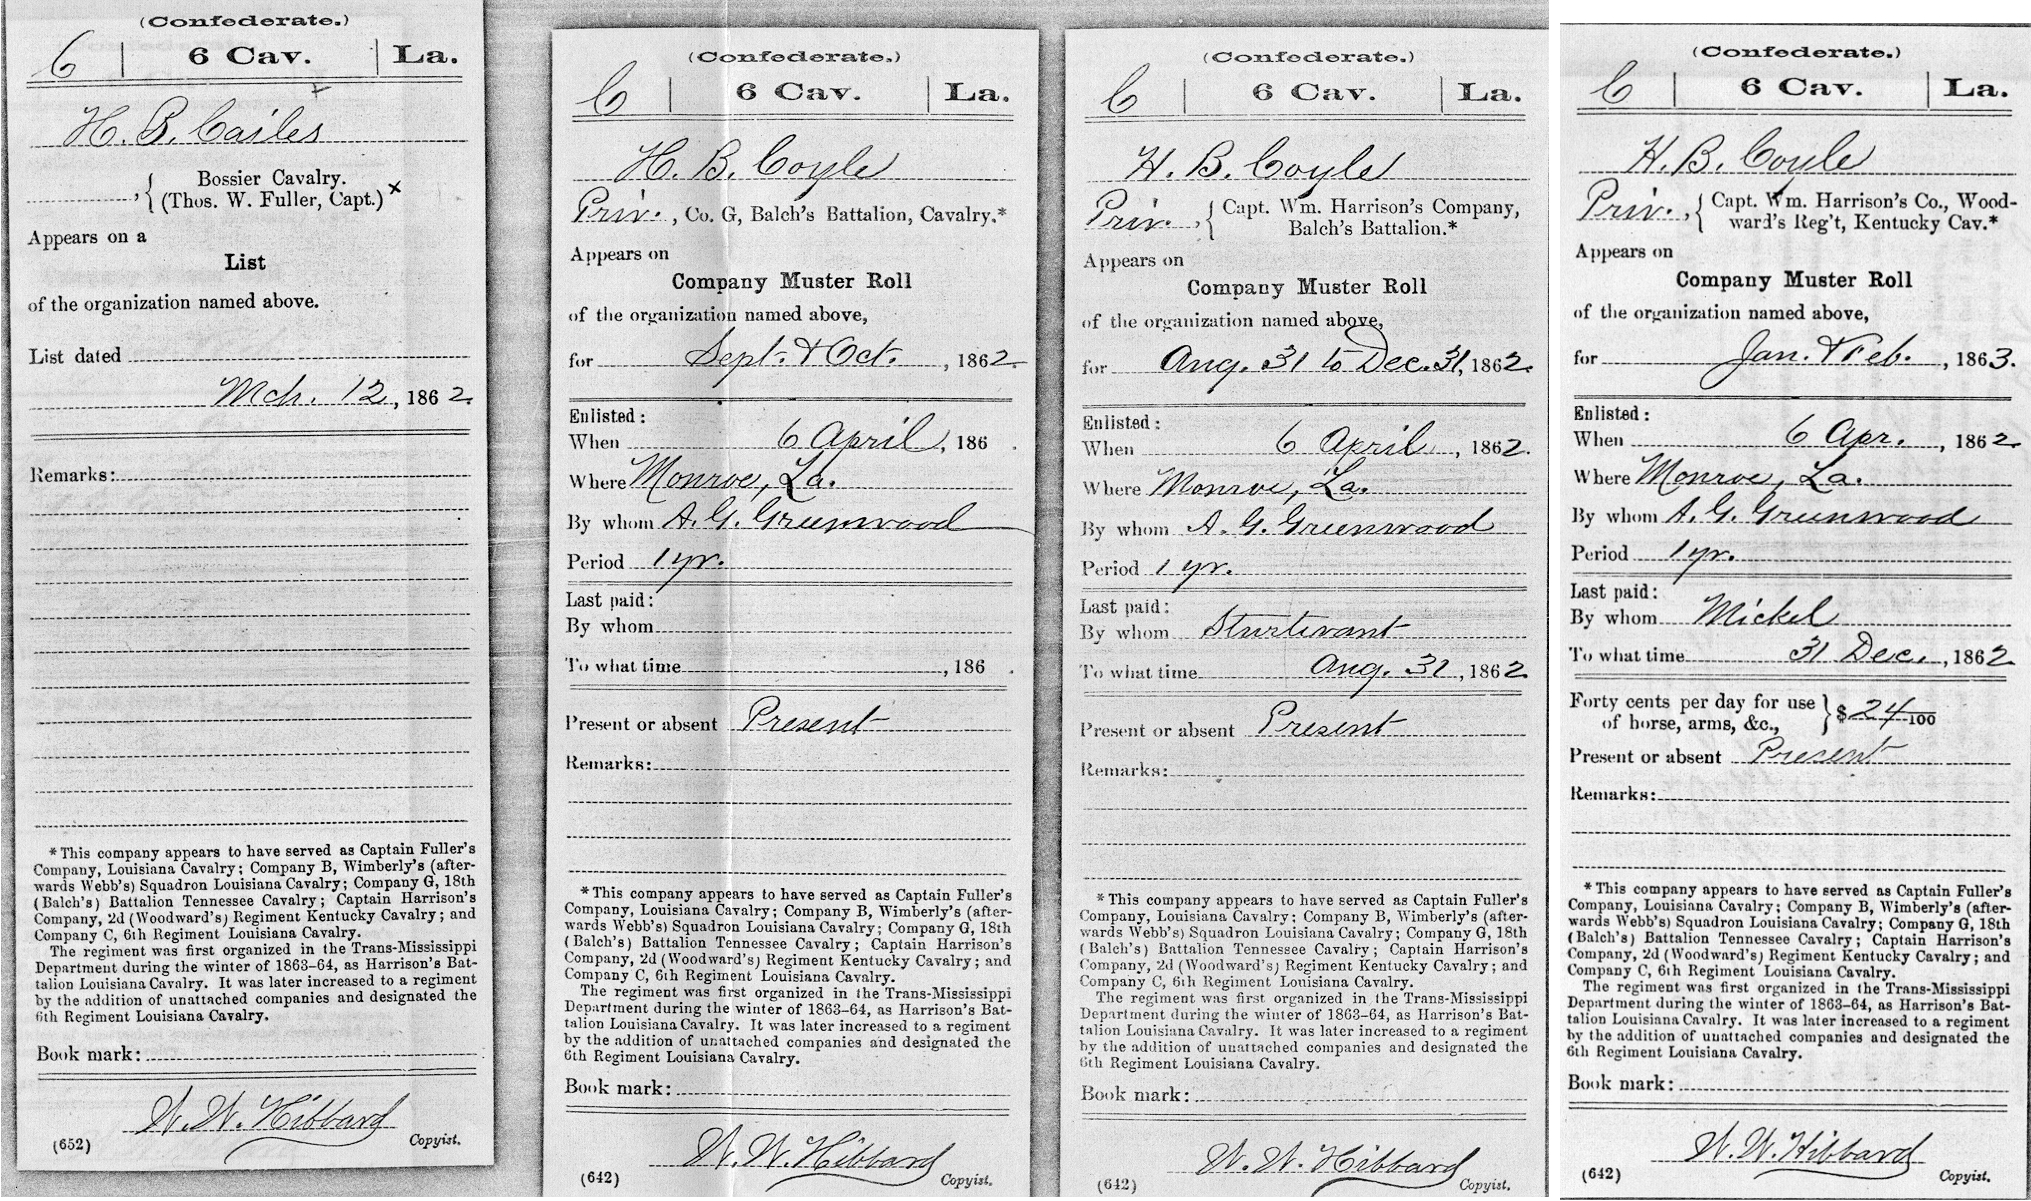 (Confederate.)
C | 6 Cav. | La.
H. B. Cailes
Bossier Cavalry.
(Thos. W. Fuller, Capt.) x
Appears on a
List
of the organization named above.
List dated
Mch. 12, 1862.
Remarks:
*This company appears to have served as Captain Fuller's
Company, Louisiana Cavalry; Company B, Wimberly's (after-
wards Webb's) Squadron Louisiana Cavalry; Company G, 18th
(Balch's) Battalion Tennessee Cavalry; Captain Harrison's
Company, 2d (Woodward's) Regiment Kentucky Cavalry; and
Company C, 6th Regiment Louisiana Cavalry.
The regiment was first organized in the Trans-Mississippi
Department during the winter of 1863-64, as Harrison's Bat-
talion Louisiana Cavalry. It was later increased to a regiment
by the addition of unattached companies and designated the
6th Regiment Louisiana Cavalry.
Book mark:
W. W. Hibbard
(652) Copyist.
(Confederate.)
C | 6 Cav. | La.
H. B. Coyle
Priv., Co. G, Balch's Battalion, Cavalry.*
Appears on
Company Muster Roll
of the organization named above,
for Sept. & Oct., 1862.
Enlisted:
When 6 April, 186 .
Where Monroe, La.
By whom A. G. Greenwood
Period 1 yr.
Last paid:
By whom
To what time , 186 .
Present or absent Present
Remarks:
*This company appears to have served as Captain Fuller's
Company, Louisiana Cavalry; Company B, Wimberly's (after-
wards Webb's) Squadron Louisiana Cavalry; Company G, 18th
(Balch's) Battalion Tennessee Cavalry; Captain Harrison's
Company, 2d (Woodward's) Regiment Kentucky Cavalry; and
Company C, 6th Regiment Louisiana Cavalry.
The regiment was first organized in the Trans-Mississippi
Department during the winter of 1863-64, as Harrison's Bat-
talion Louisiana Cavalry. It was later increased to a regiment
by the addition of unattached companies and designated the
6th Regiment Louisiana Cavalry.
Book mark:
W. W. Hibbard
(642) Copyist.
(Confederate.)
C | 6 Cav. | La.
H. B. Coyle
Priv., Capt. Wm. Harrison's Company,
Balch's Battalion.*
Appears on
Company Muster Roll
of the organization named above,
for Aug. 31 to Dec. 31, 1862.
Enlisted:
When 6 April, 1862.
Where Monroe, La.
By whom A. G. Greenwood
Period 1 yr.
Last paid:
By whom Sturtivant
To what time Aug. 31, 1862
Present or absent Present
Remarks:
*This company appears to have served as Captain Fuller's
Company, Louisiana Cavalry; Company B, Wimberly's (after-
wards Webb's) Squadron Louisiana Cavalry; Company G, 18th
(Balch's) Battalion Tennessee Cavalry; Captain Harrison's
Company, 2d (Woodward's) Regiment Kentucky Cavalry; and
Company C, 6th Regiment Louisiana Cavalry.
The regiment was first organized in the Trans-Mississippi
Department during the winter of 1863-64, as Harrison's Bat-
talion Louisiana Cavalry. It was later increased to a regiment
by the addition of unattached companies and designated the
6th Regiment Louisiana Cavalry.
Book mark:
W. W. Hibbard
(642) Copyist.
(Confederate.)
C | 6 Cav. | La.
H. B. Coyle
Priv., Capt. Wm. Harrison's Co., Wood-
ward's Reg't, Kentucky Cav.*
Appears on
Company Muster Roll
of the organization named above,
for Jan. & Feb., 1863.
Enlisted:
When 6 Apr., 1862
Where Monroe, La.
By whom A. G. Greenwood
Period 1 yr.
Last paid:
By whom Mickel
To what time 31 Dec., 1862
Forty cents per day for use
of horse, arms, &c., $ 24/100
Present or absent Present
Remarks:
*This company appears to have served as Captain Fuller's
Company, Louisiana Cavalry; Company B, Wimberly's (after-
wards Webb's) Squadron Louisiana Cavalry; Company G, 18th
(Balch's) Battalion Tennessee Cavalry; Captain Harrison's
Company, 2d (Woodward's) Regiment Kentucky Cavalry; and
Company C, 6th Regiment Louisiana Cavalry.
The regiment was first organized in the Trans-Mississippi
Department during the winter of 1863-64, as Harrison's Bat-
talion Louisiana Cavalry. It was later increased to a regiment
by the addition of unattached companies and designated the
6th Regiment Louisiana Cavalry.
Book mark:
W. W. Hibbard
(642) Copyist.